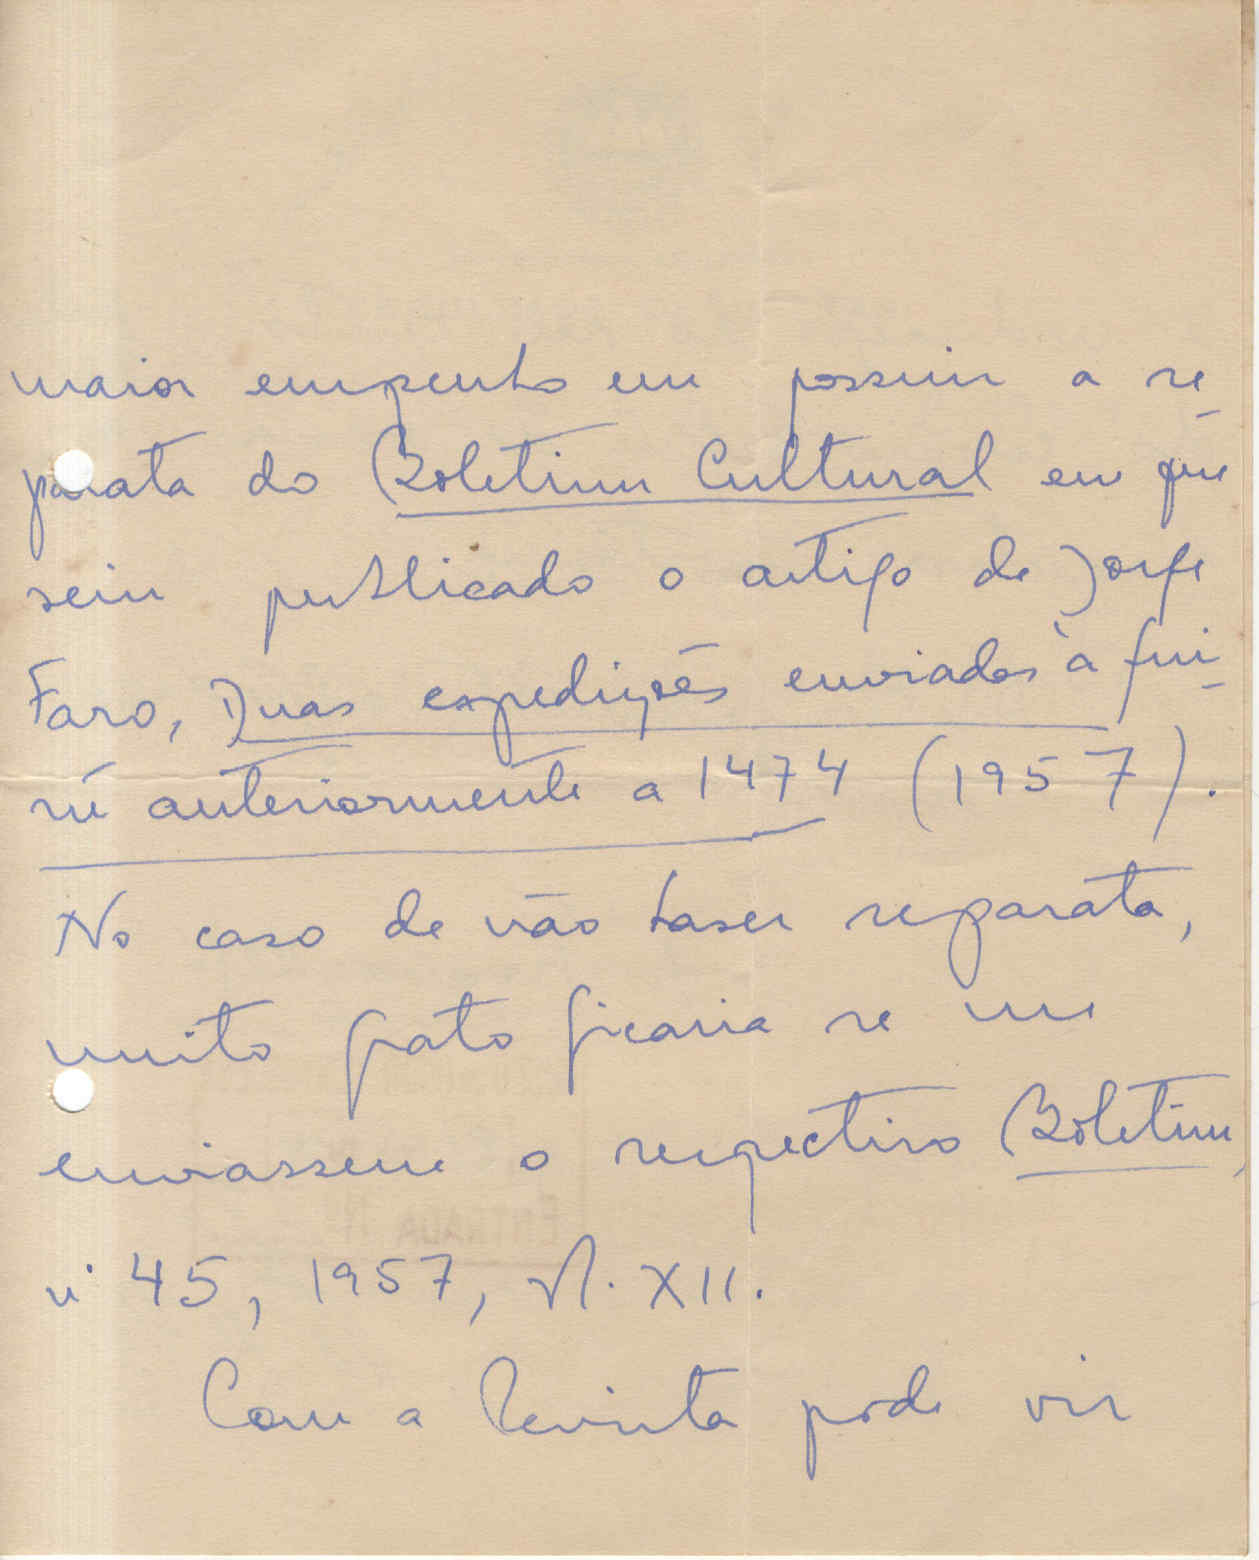 maior empenho em possuir a se-
parata do Boletim Cultural em que
saiu publicado o artigo de Jorge
Faro, Duas expedições enviadas à Gui-
né anteriormente a 1474 (1957).
No caso de não haver separata,
muito grato ficaria se me
enviassem o respectivo Boletim,
nº 45, 1957, vol. XII.
Com a Revista pode vir